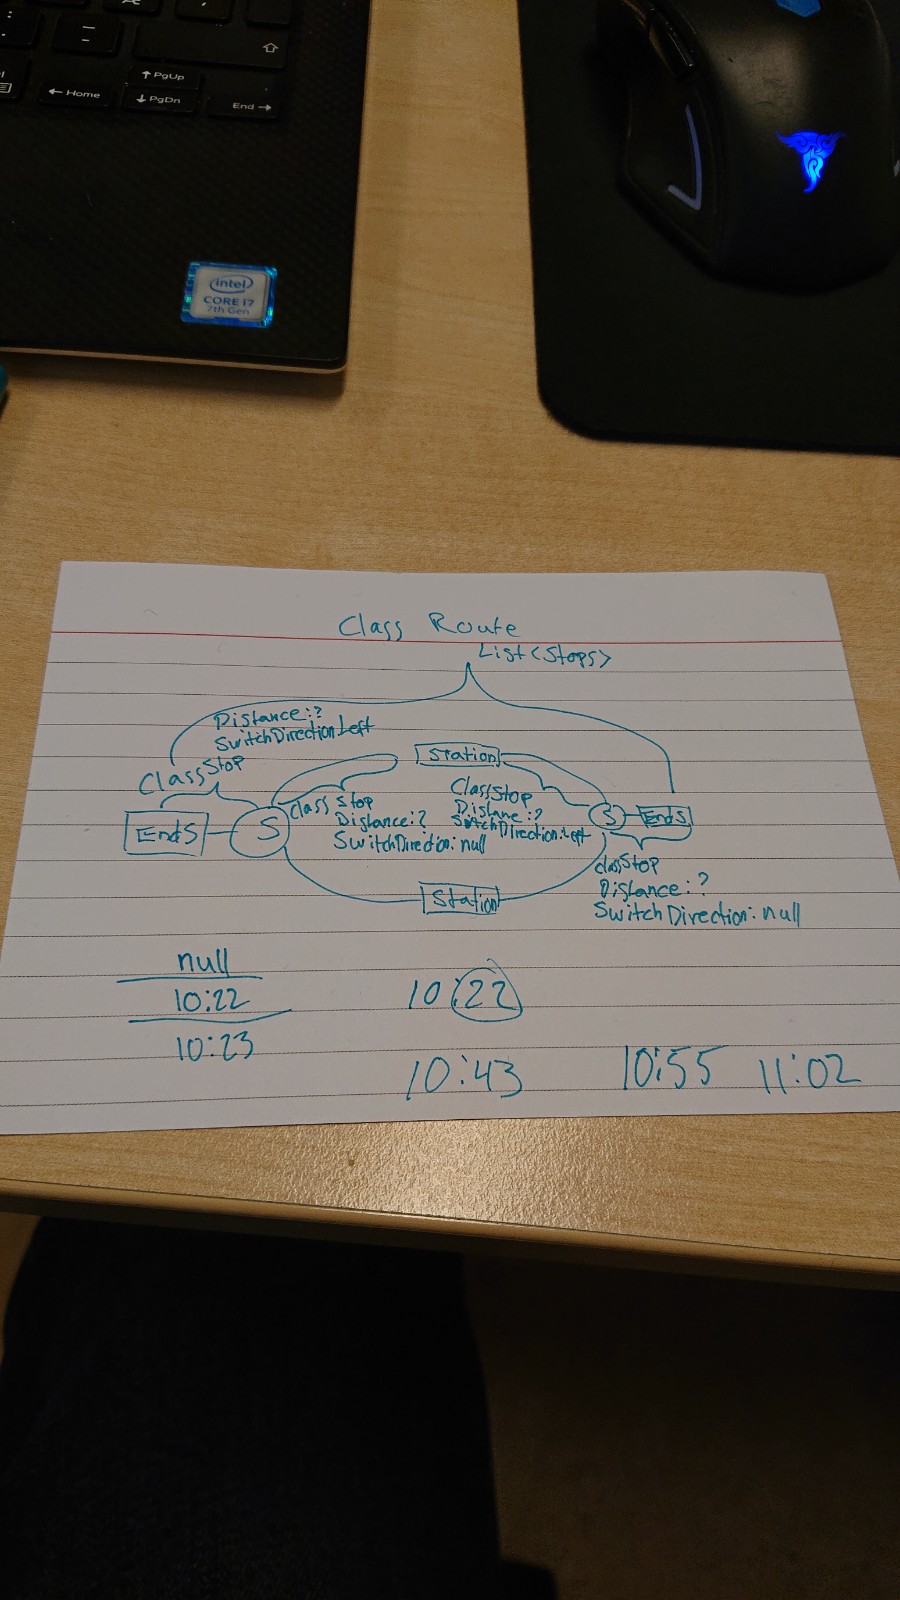 ↑ PgUp
← Home
↓ PgDn
End →
intel
CORE i7
7th Gen
Class Route
List<Stops>
Distance:?
SwitchDirection:Left
Class Stop
Station
Class Stop
Distance:?
SwitchDirection:null
Class Stop
Distane:?
SwitchDirection:Left
EndS
S
S
EndS
Station
class Stop
Distance:?
SwitchDirection:null
null
10:22
10:23
10:22
10:43
10:55
11:02